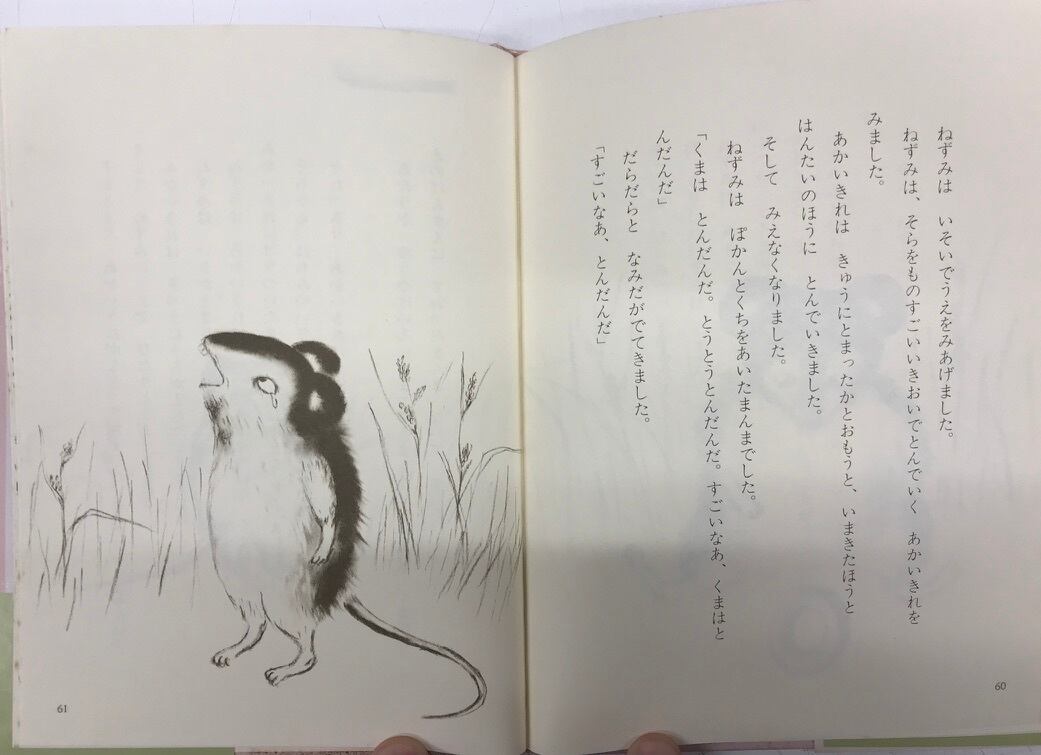 ねずみは　いそいでうえをみあげました。
ねずみは、そらをものすごいいきおいでとんでいく　あかいきれを
みました。
あかいきれは　きゅうにとまったかとおもうと、いまきたほうと
はんたいのほうに　とんでいきました。
そして　みえなくなりました。
ねずみは　ぽかんとくちをあいたまんまでした。
「くまは　とんだんだ。とうとうとんだんだ。すごいなあ、くまはと
んだんだ」
だらだらと　なみだがでてきました。
「すごいなあ、とんだんだ」
60
61